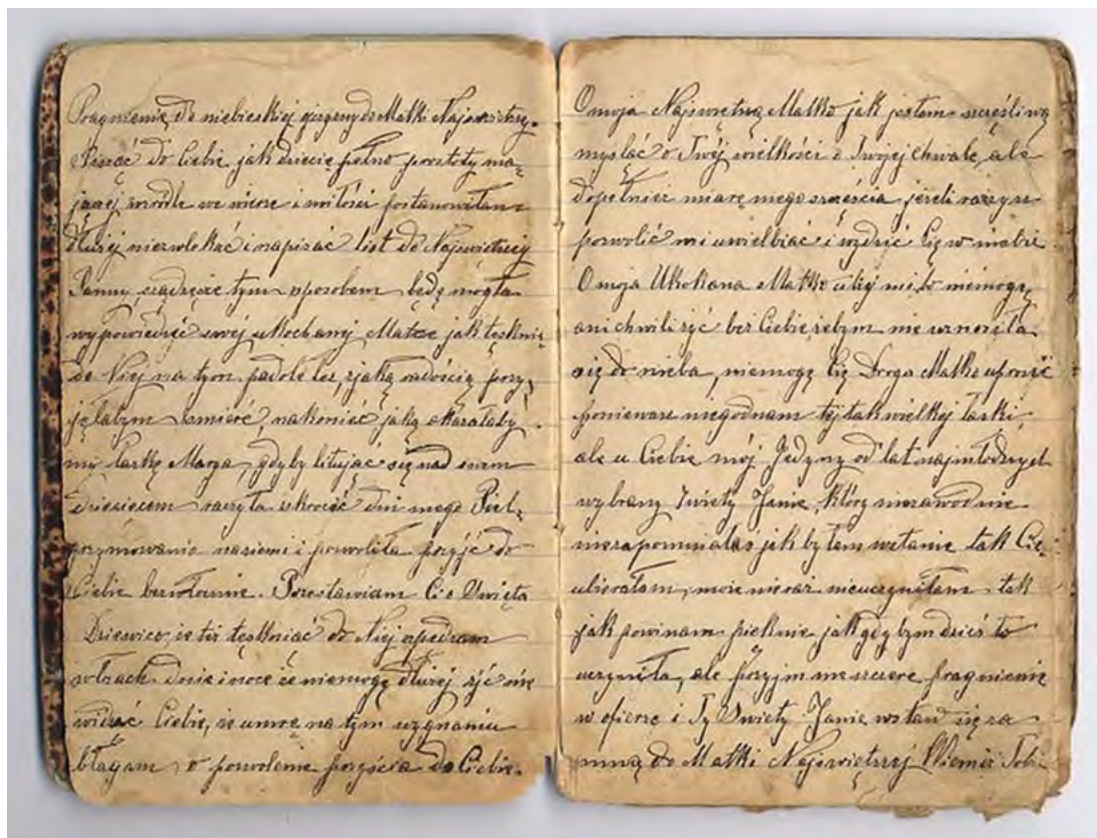 Pragnienie do niebieskiej ojczyzny do Matki Najświętszy.
Pisząc do Ciebie, jak dziecię pełno prostoty ma=
jącej źródle we wierze i miłości postanowiłam=
dłużej niezwlekać i napisać list do Najświetszej
Panny, sądzęże tym sposobem będę mogła
wypowiedzieć swej ukochanej Matce jak tesknię
do Niej na tym padole łez, zjaką radością przy,
jęłabym śmierć, nakoniec jaką okazałaby
mi łaskę Marya, gdyby litując się nad swem
dziecięcem raczyła skrócić dni mego Piel,
grzymowania naziemi i pozwoliła przyjść do
Ciebie bezzłownie. Przestawiam Ci o Święta
Dziewico iż tu tęskniąc do Niej spędzam
włzach dnie i noce że niemogę dłużej żyć nie
widząc Ciebie, że umrę na tym wygnaniu
błagam, o pozwolenie przyścia do Ciebie.
O moja Najświetszą Matko jak jestem szczęśliwą
mysląc o Twój wielkości o Twojej chwale, ale
dopełnisz miarę mego szczęścia, jeżeli raczysz
pozwolić mi uwielbiać i widzieć Cię w niebie
O moja Ukohana Matko ulżyj mi, bo niemogę
ani chwili żyć bez Ciebie żebym nie wznosiła
się do nieba, niemogę Cię Droga Matko uprosić
ponieważ niegodnam tej tak wielkiej łaski,
ale u Ciebie mój Jedyny od lat najmłodszych
wybrany Swiety Janie, który niezawodnie
niezapominałaś jak byłam wstanie tak Cię
ubierałam, może nieraz nieuczyniłam tak
jak powinam pieknie jak gdybym dziś to
uczyniła, ale przyjm me szczere pragnienie
w ofierze i Ty Swiety Janie wstaw się za
mną do Matki Najświętszej Wiemże Tobi